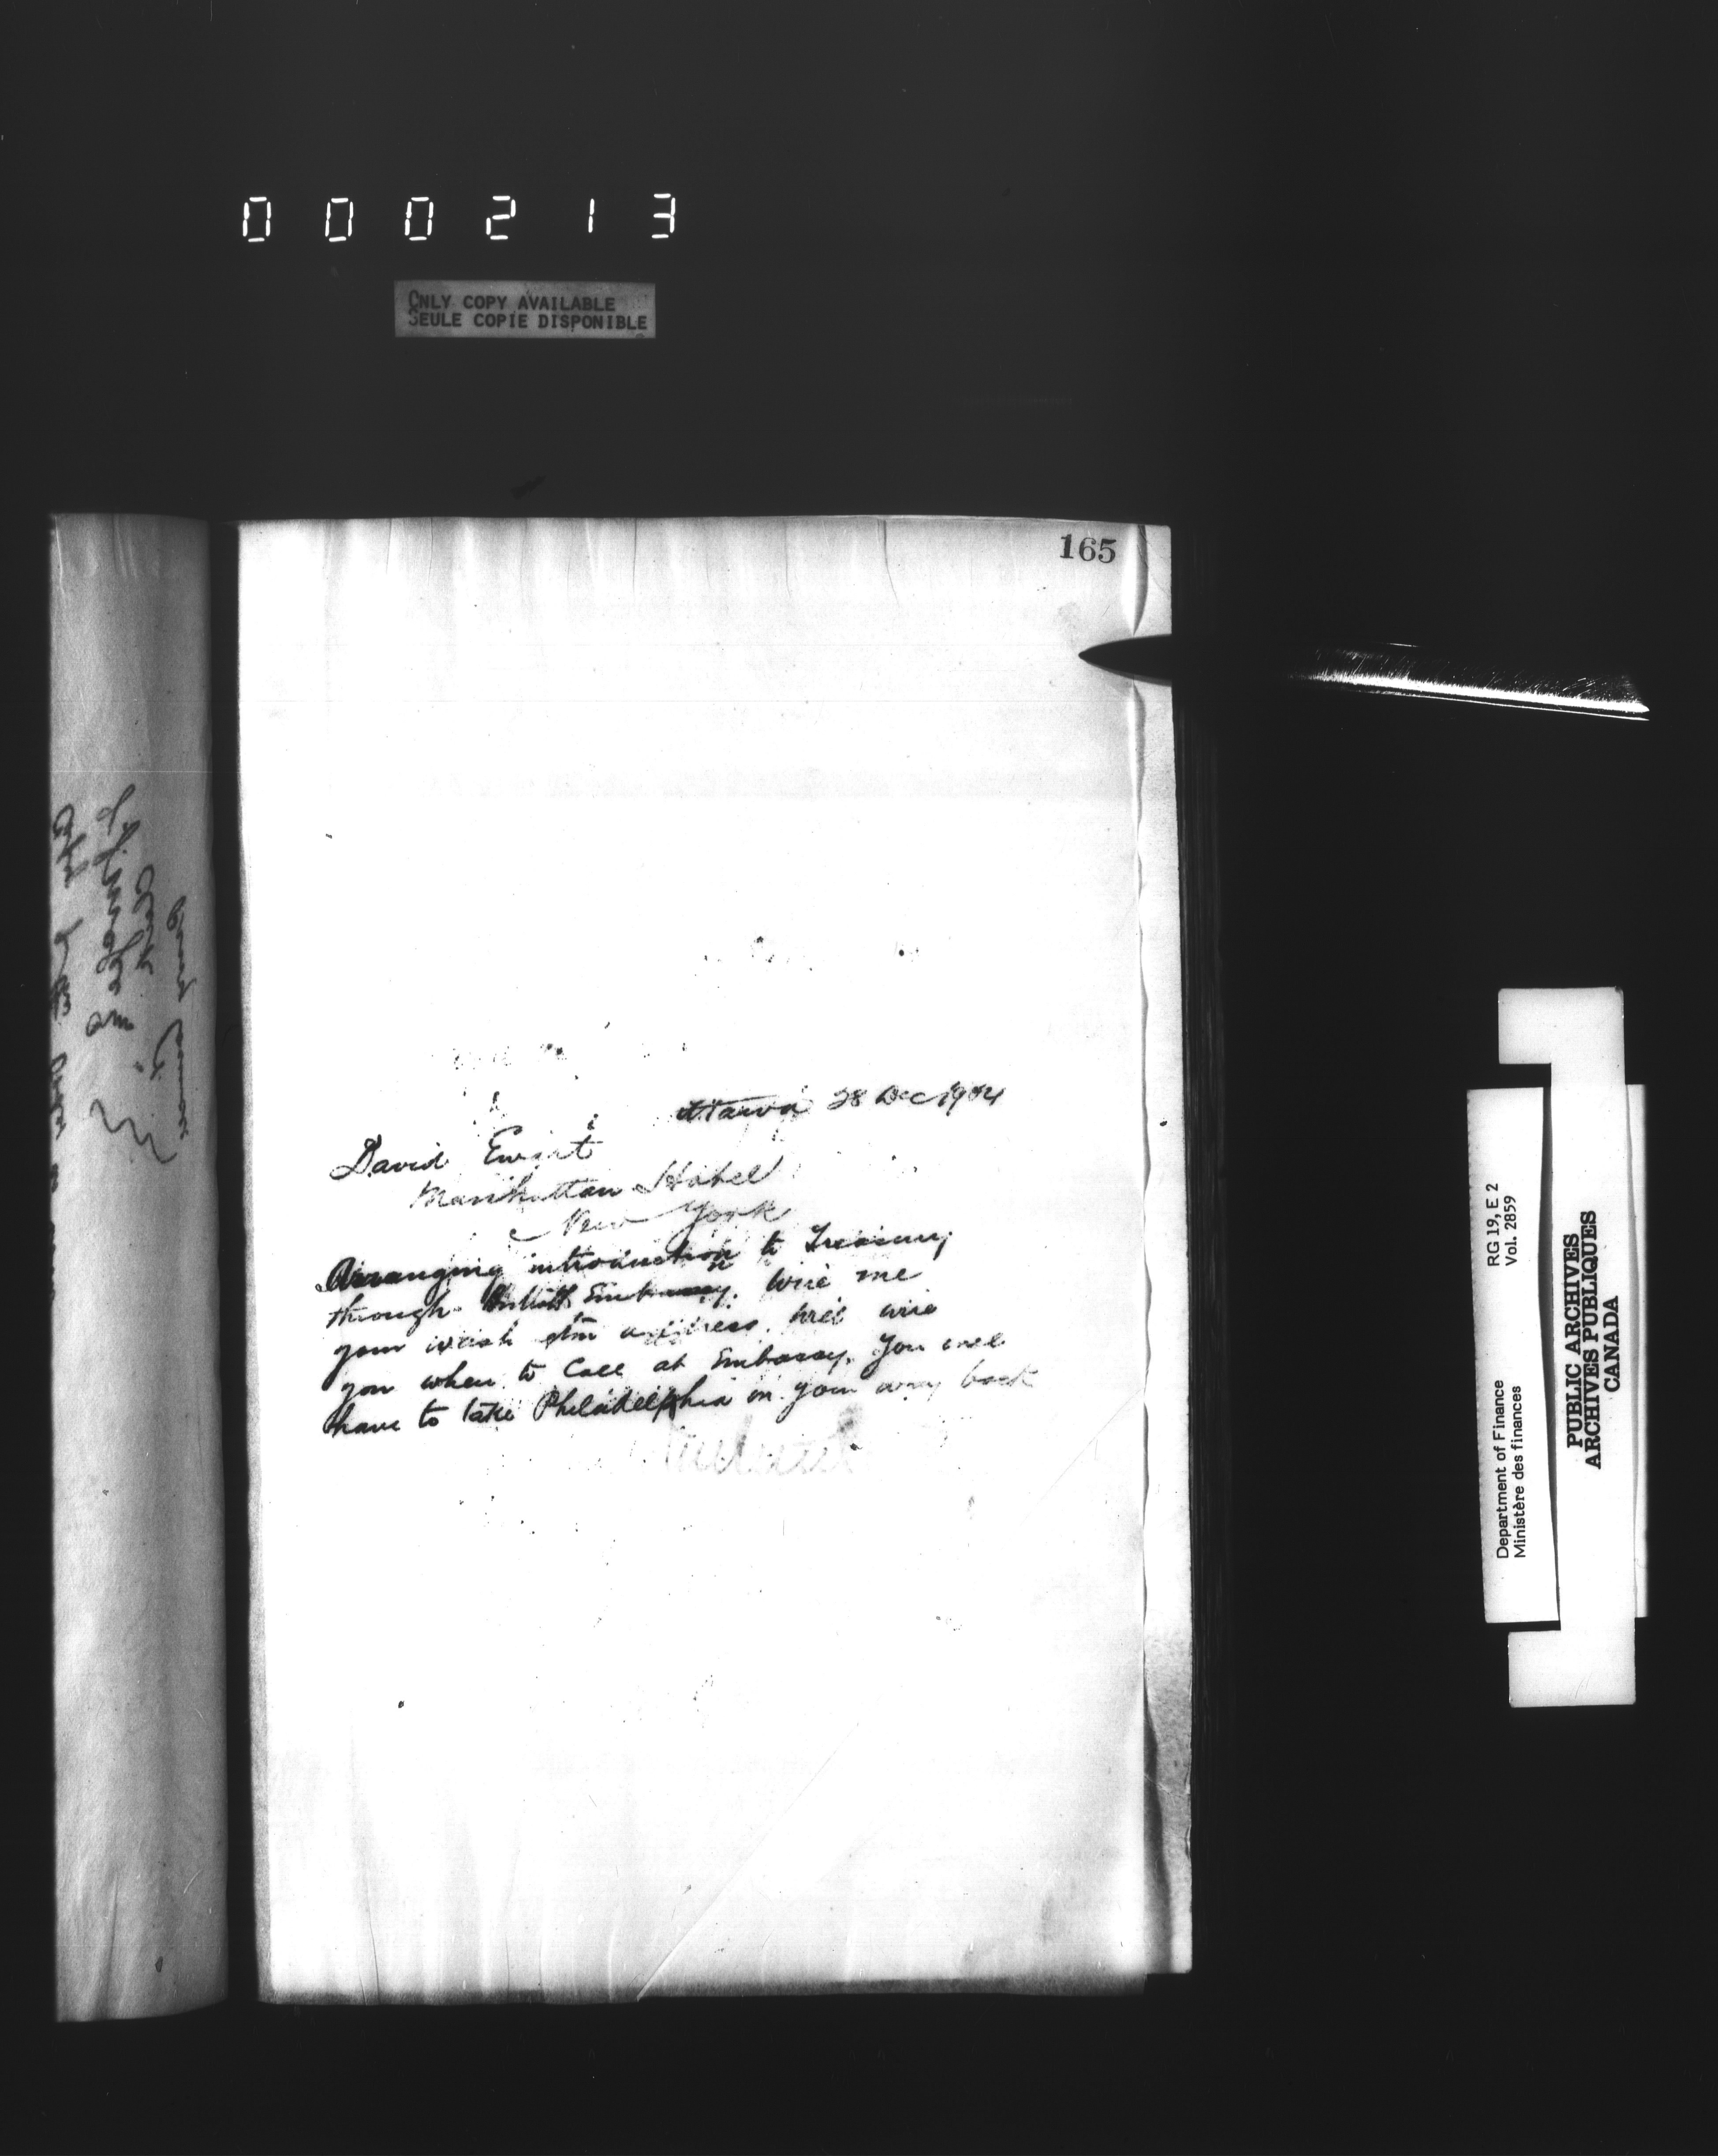 000213
ONLY COPY AVAILABLE
SEULE COPIE DISPONIBLE
165
Ottawa 28 Dec 1904
David Ewart
Manhattan Hotel
New York
Arranging introduction to Treasury
through British Embassy. Wire me
your Wash address. will wire
you when to Call at Embassy. You will
have to take Philadelphia on your way back
RG 19, E 2
Vol. 2859
Department of Finance
Ministère des finances
PUBLIC ARCHIVES
ARCHIVES PUBLIQUES
CANADA